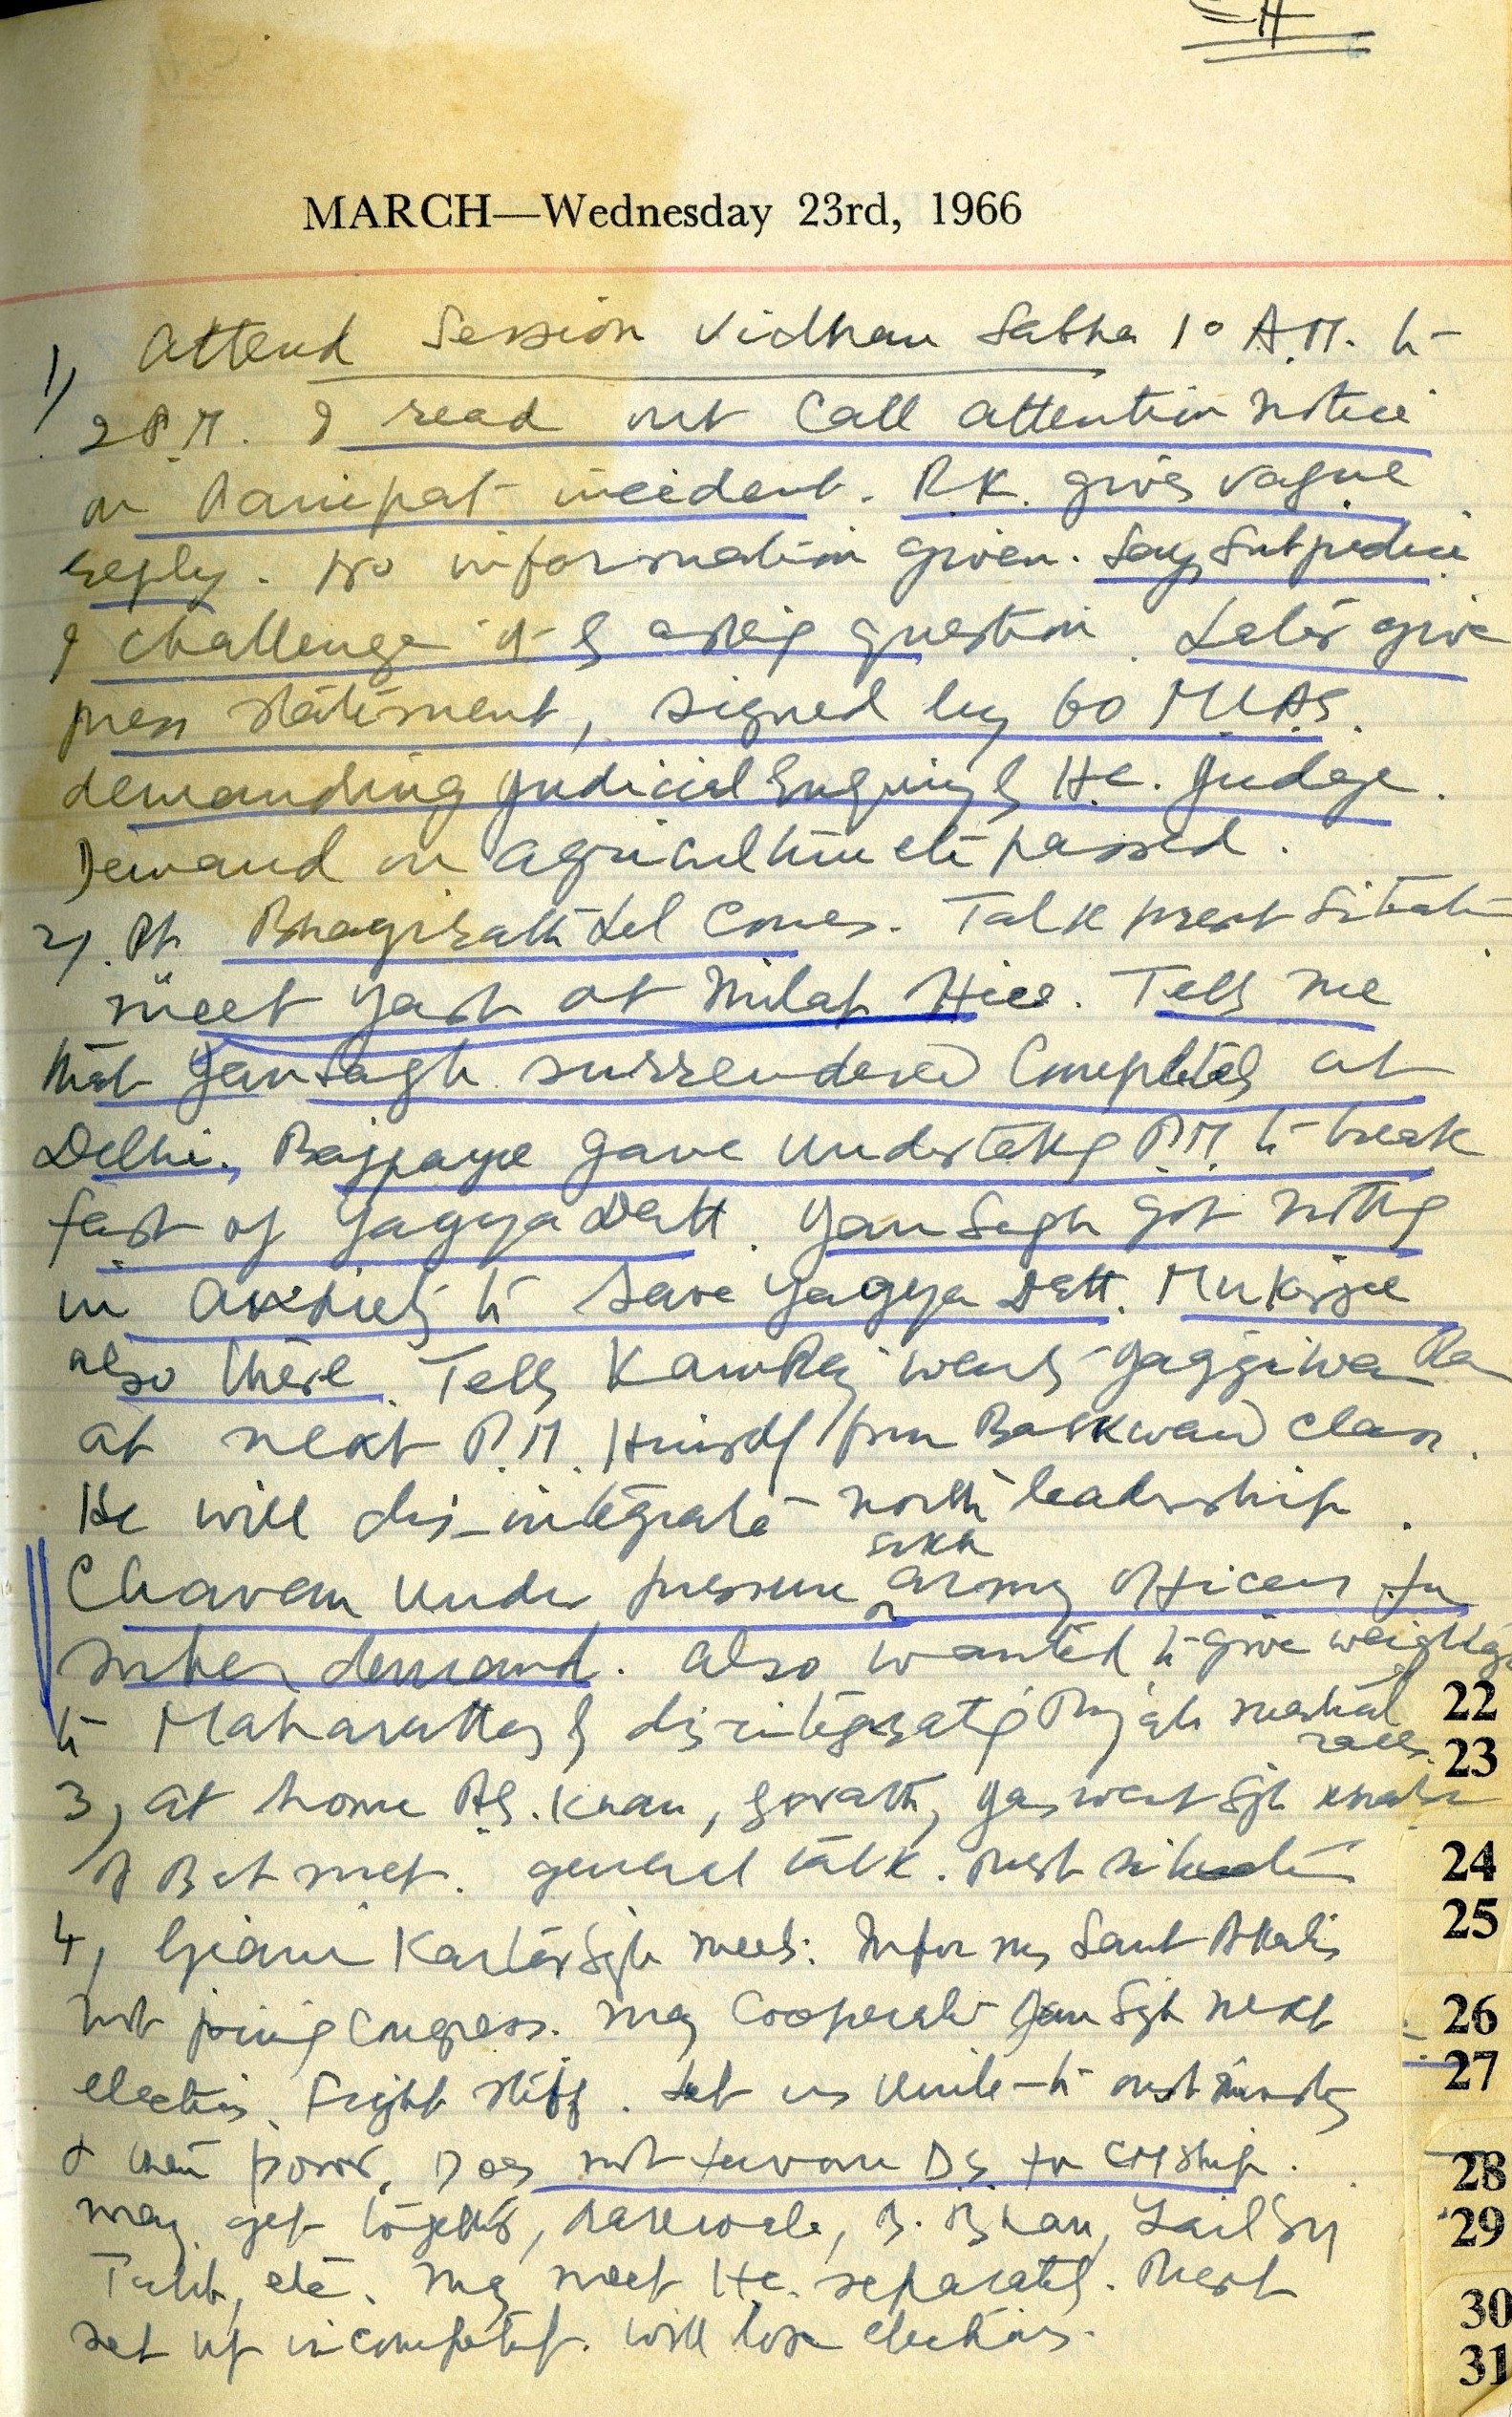 MARCH—Wednesday 23rd, 1966
1) Attend Session Vidhan Sabha 10 A.M. to
2 P.M. I read out Call attention notice
on Panipat incident. R.K. gives vague
reply. No information given. Says Subjudice
I challenge it by asking question. Later give
press statement, signed by 60 MLAs.
demanding Judicial Enquiry by H.C. Judge.
Demand on agriculture etc passed.
2). Pt. Bhagirath Lal Comes. Talk present Situation
meet Yash at Milap Office. Tells me
that Jan Sangh surrendered Completely at
Delhi. Bajpayee gave undertaking P.M. to break
fast of Yagya Datt. Jan Sangh got nothing
in anxiety to Save Yagya Datt. Mukerjee
also there. Tells KamRaj wants Jaggiwan Ram
as next P.M. Himself from Backward class.
He will dis-integrate north leadership.
Chavan under pressure Sikh army officers for
suba demand. also wanted to give weightage
to Maharattas by disintegrating Punjab martial
races.
3) at home Khan, Yaswant Sgh
met. general talk. present situation
4) Giani Kartar Sgh meets. Informs Sant Akalis
not joining Congress. may Cooperate Jan Sgh next
election. Fight stiff. Let us unite to oust ministry
& then power. Does not favour DS for CMShip.
may get together, Rarewala, Zail Sgh
Talib, etc. may meet separately. Present
set up incompetent. will lose elections.
22
23
24
25
26
27
28
29
30
31